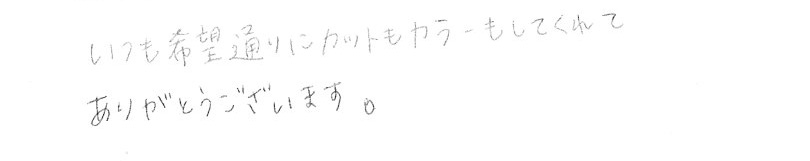 いつも希望通りにカットもカラーもしてくれて
ありがとうございます。